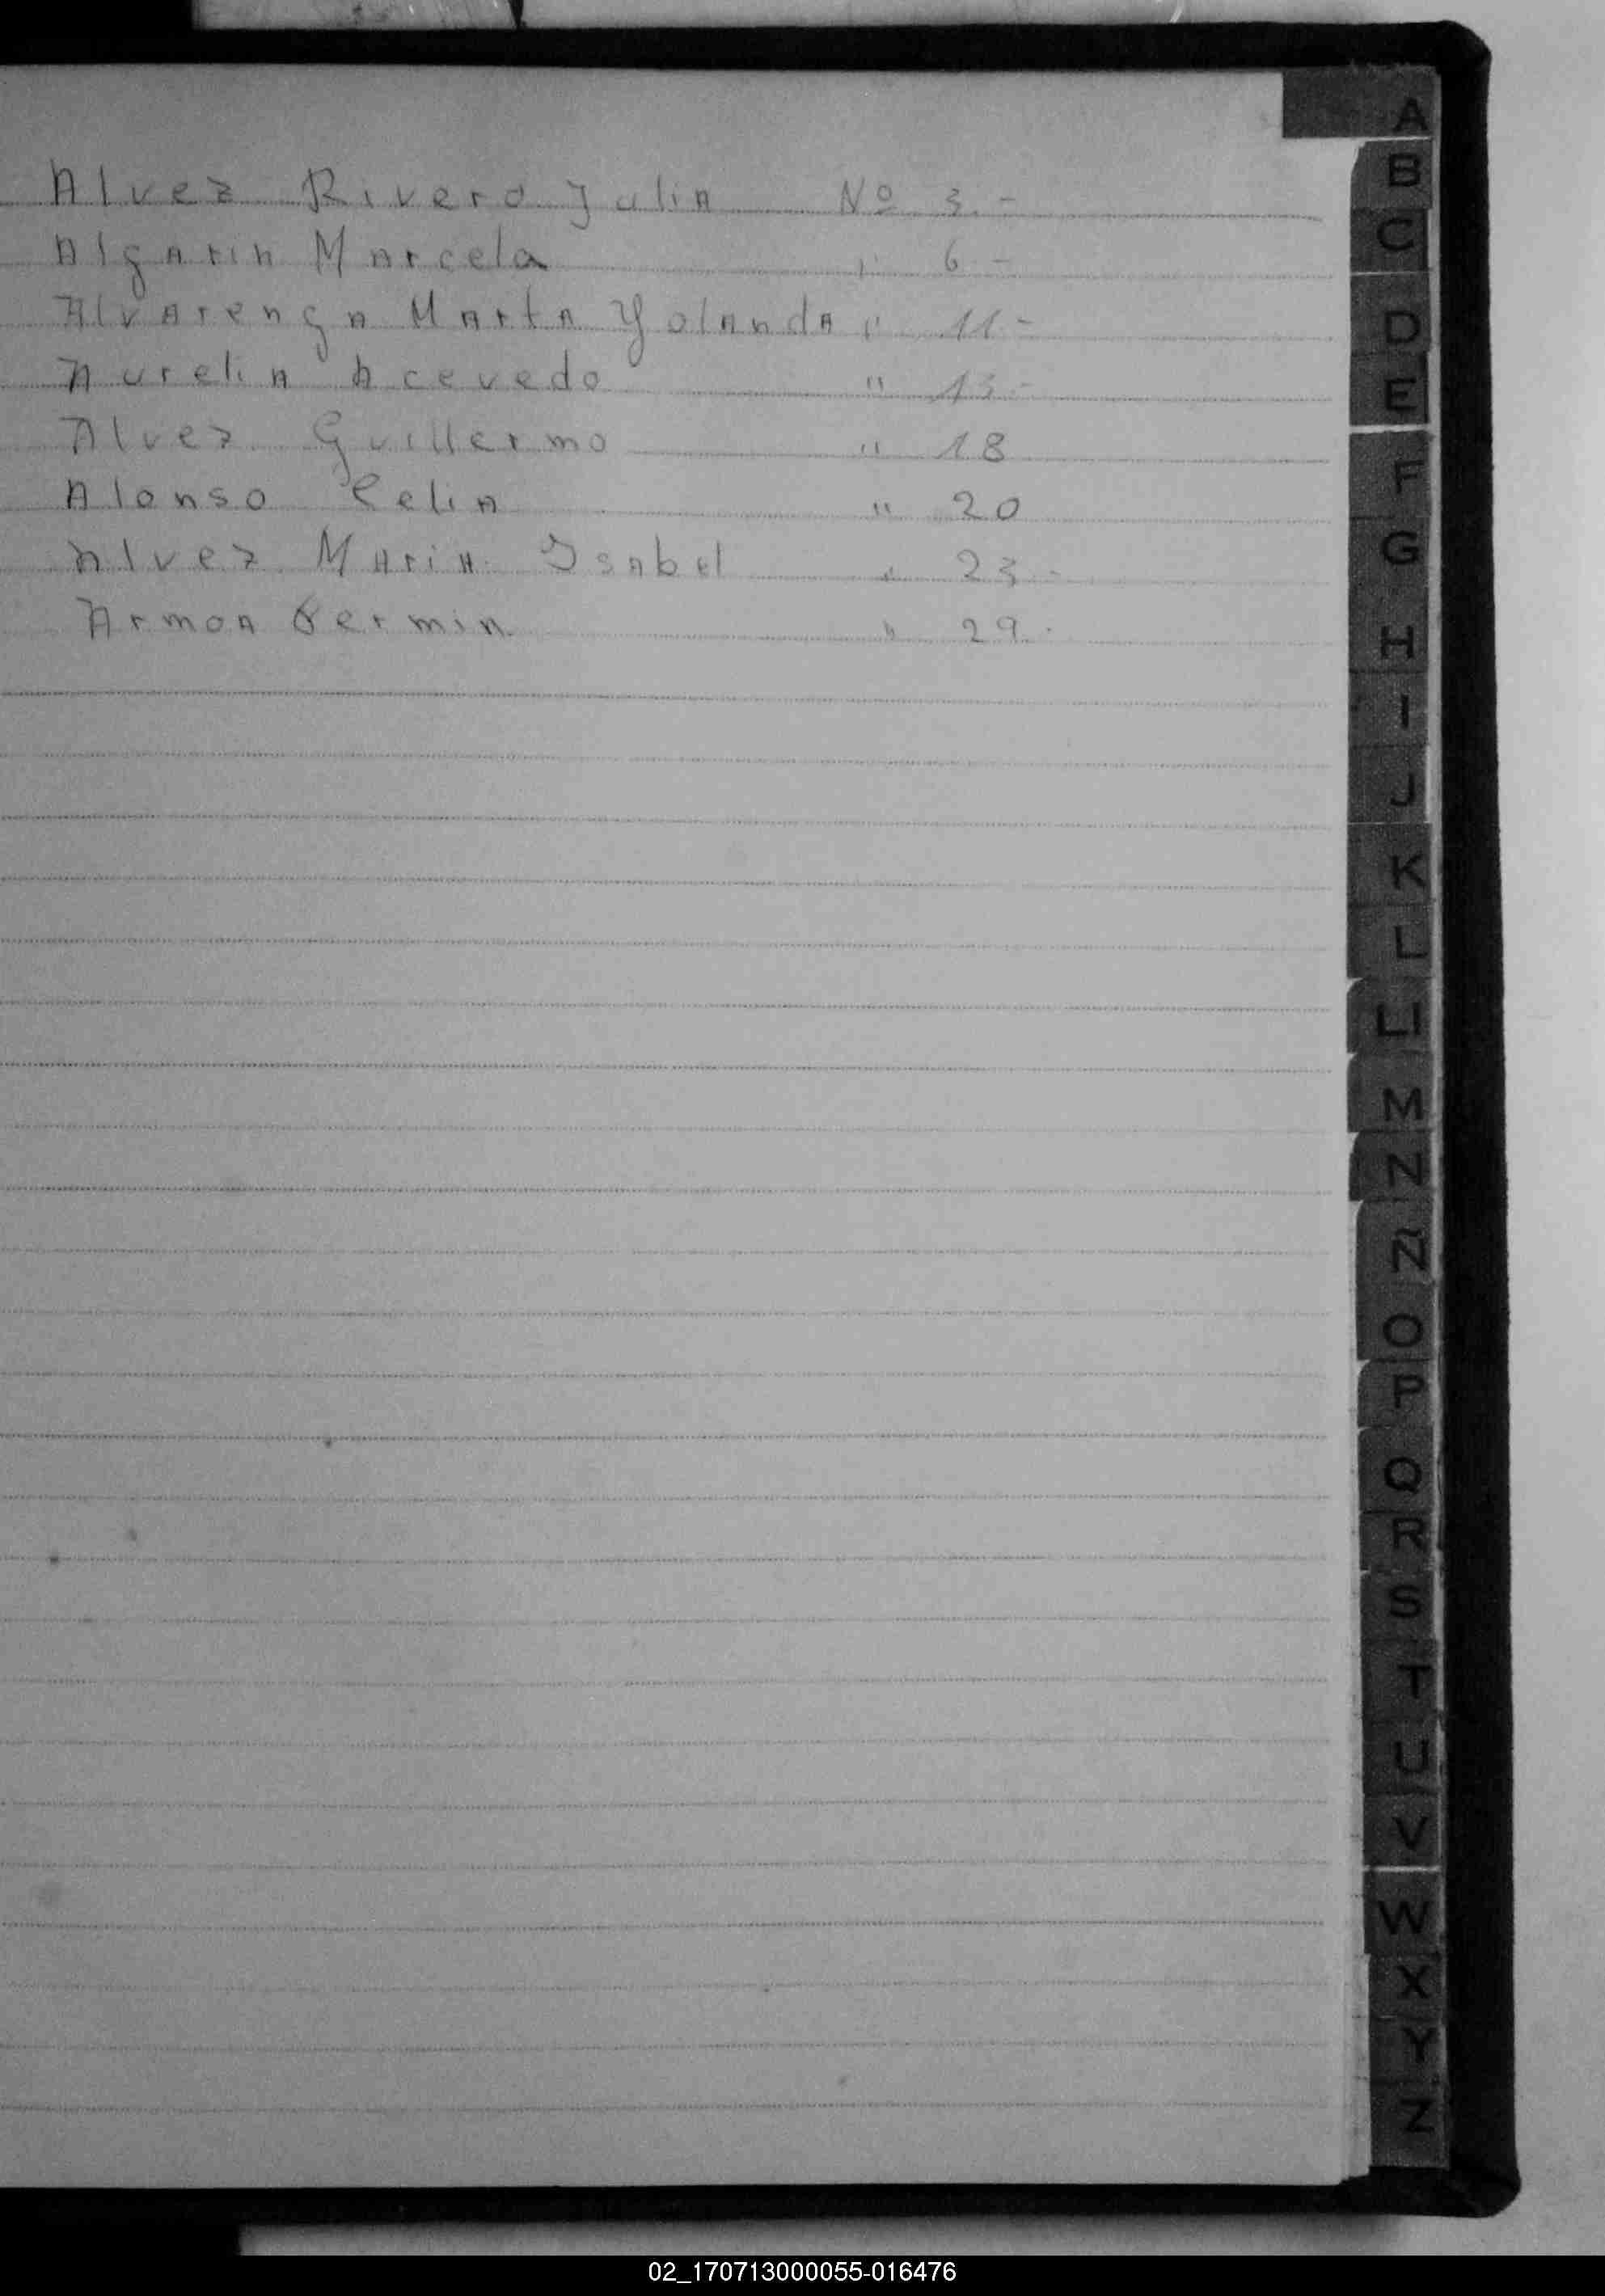 Alvez Rivero Julia Nº 3.-
Algarin Marcela " 6 -
Alvarenga Marta Yolanda " 11 -
Aurelia Acevedo " 13 -
Alvez Guillermo " 18
Alonso Celia " 20
Alvez Maria Isabel " 23 -
Armoa Fermin " 29.
A
B
C
D
E
F
G
H
I
J
K
L
Ll
M
N
Ñ
O
P
Q
R
S
T
U
V
W
X
Y
Z
02_170713000055-016476